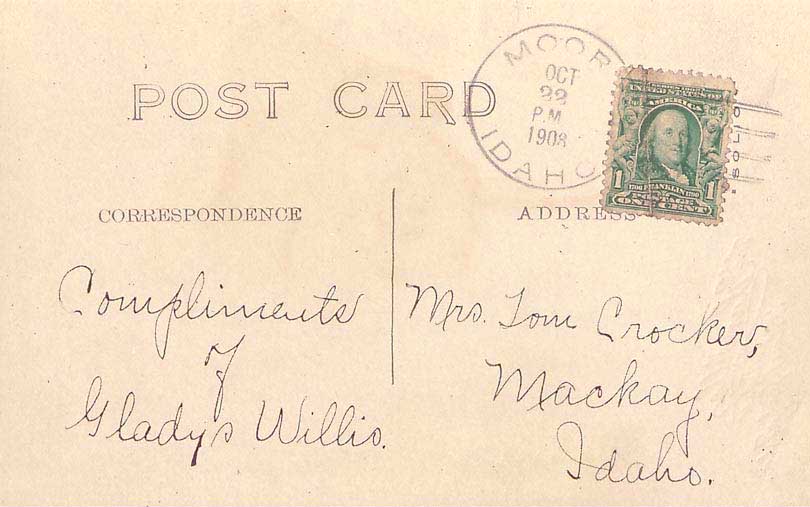 POST CARD
MOOR
OCT
22
P.M.
1908
IDAHO
AMERICA
1
1706 FRANKLIN 1790
1
POSTAGE
ONE CENT
CORRESPONDENCE
ADDRESS
Compliments
of
Gladys Willis.
Mrs. Tom Crocker,
Mackay,
Idaho.